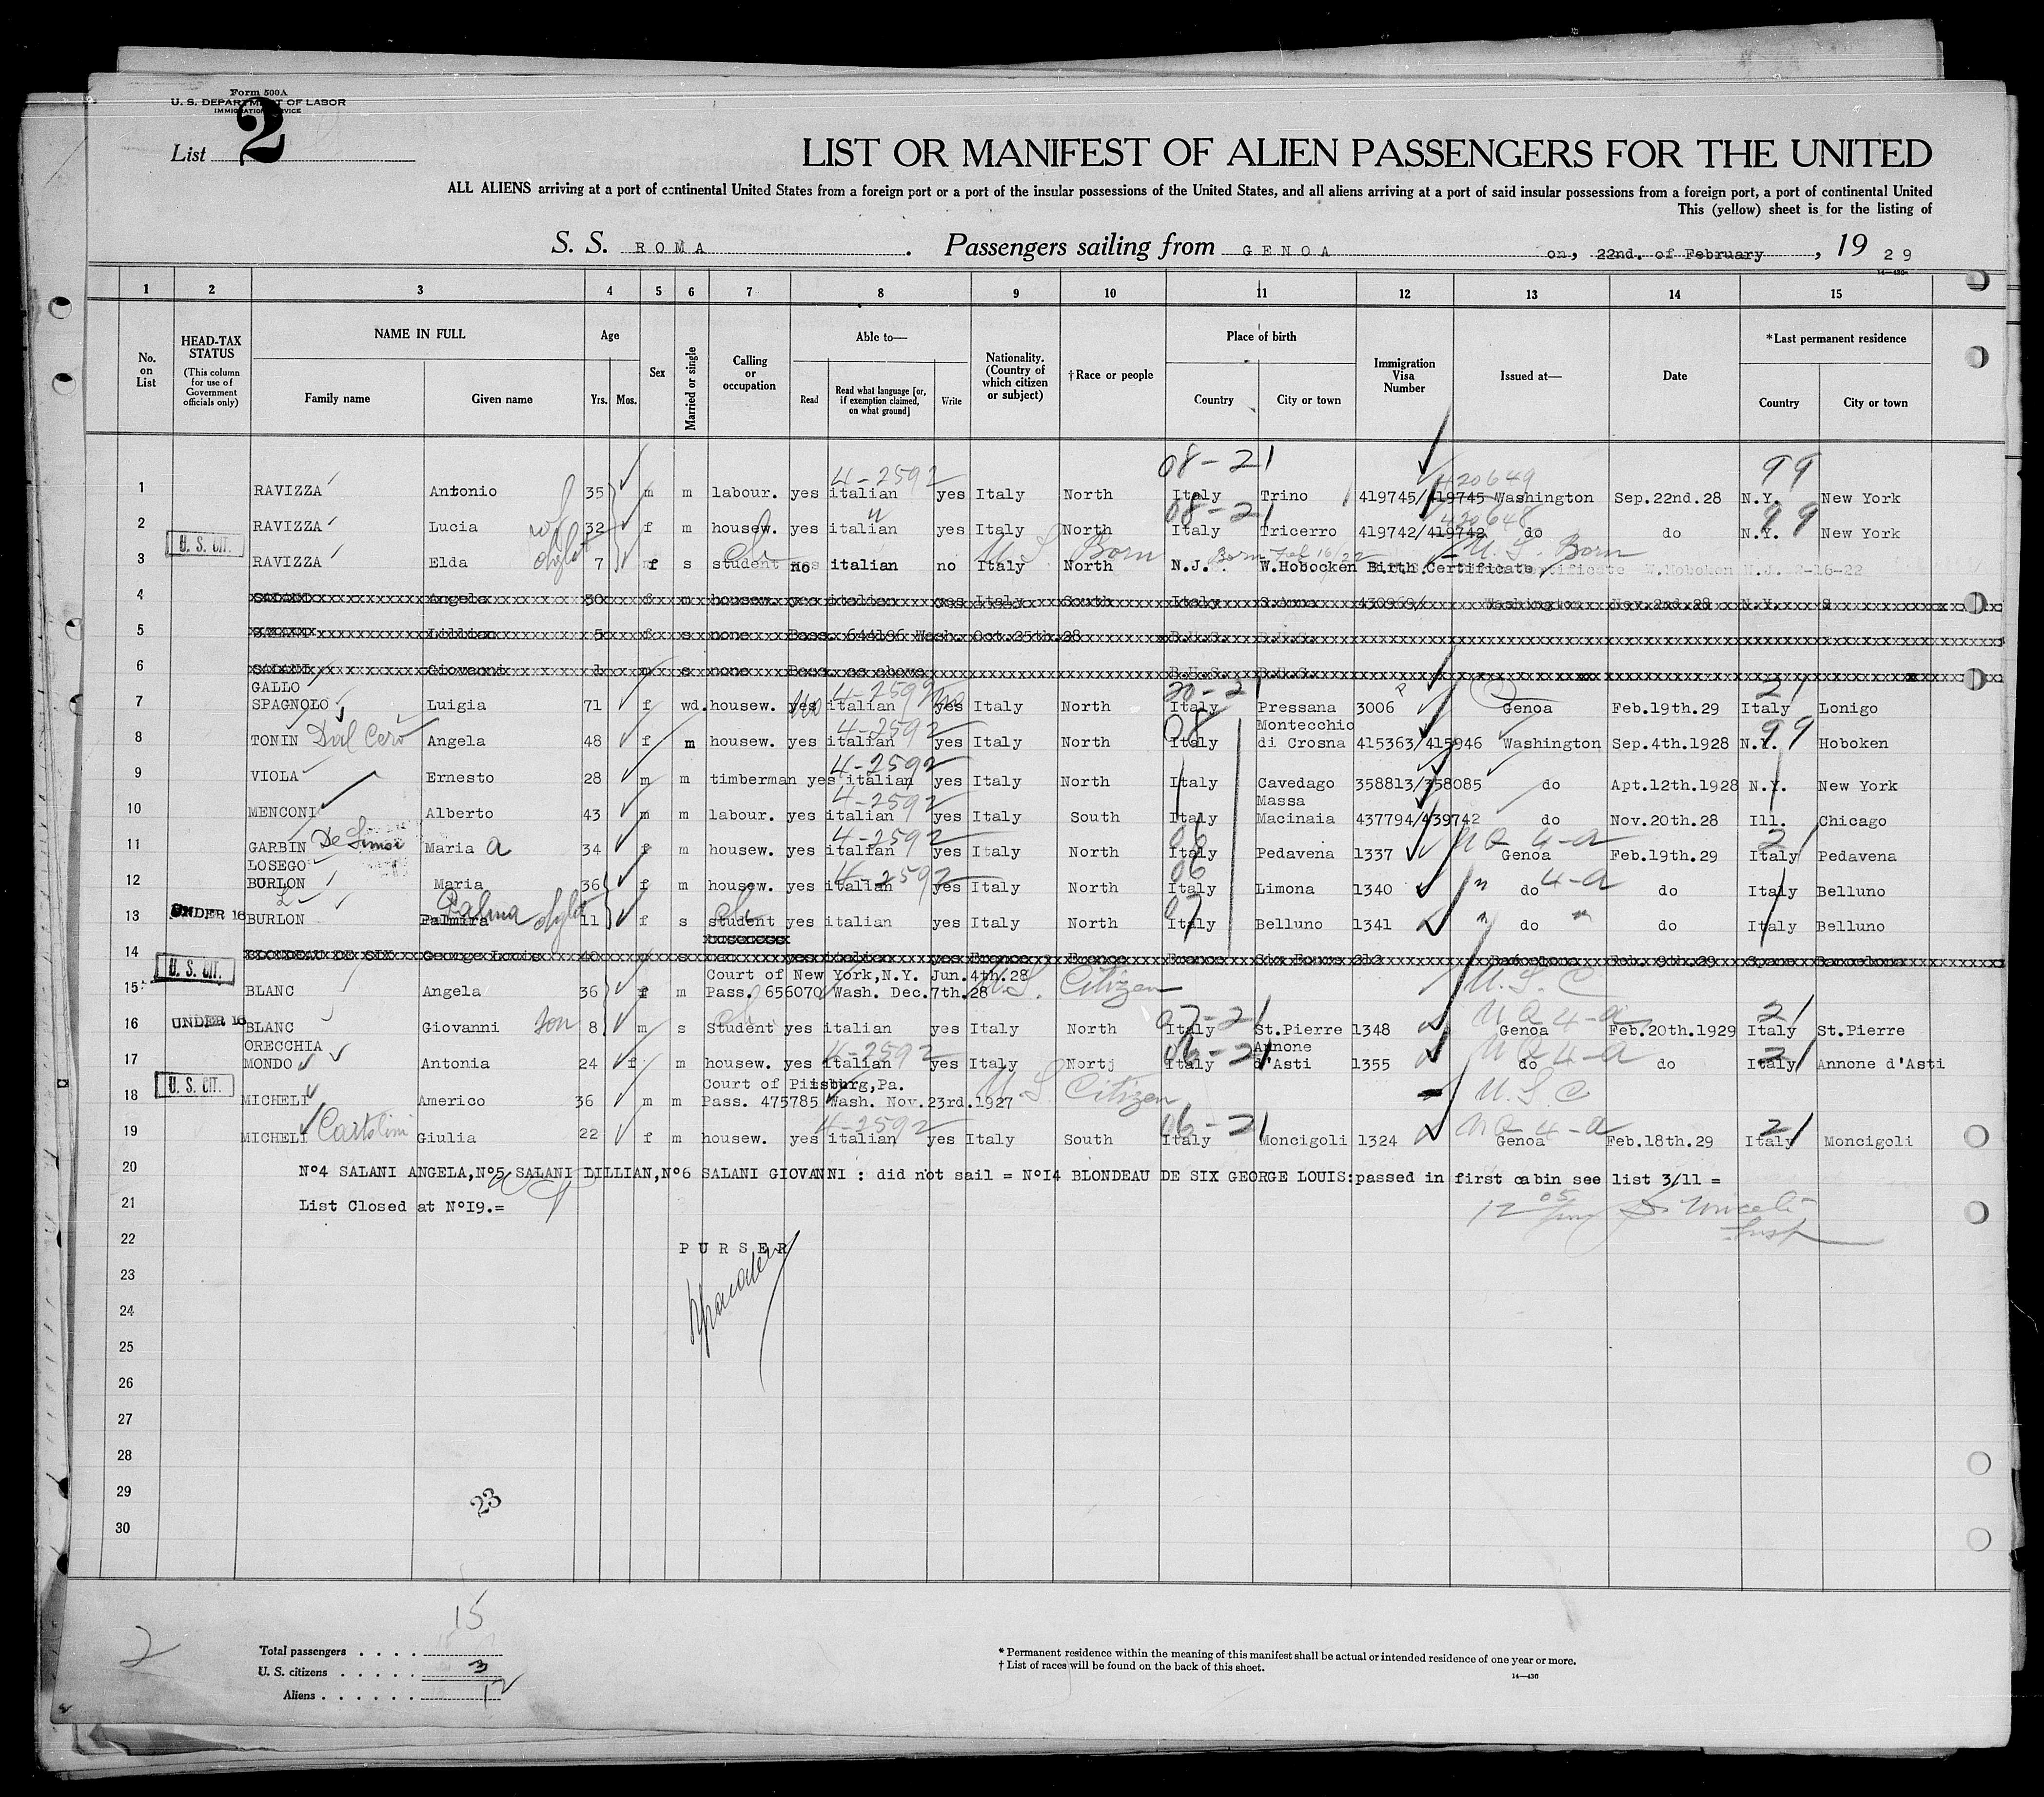 Form 500A
U. S. DEPARTMENT OF LABOR
IMMIGRATION SERVICE
List 2
LIST OR MANIFEST OF ALIEN PASSENGERS FOR THE UNITED
ALL ALIENS arriving at a port of continental United States from a foreign port or a port of the insular possessions of the United States, and all aliens arriving at a port of said insular possessions from a foreign port, a port of continental United
This (yellow) sheet is for the listing of
S. S. ROMA. Passengers sailing from GENOA on, 22nd. of February, 19 29
14—430
1 2 3 4 5 6 7 8 9 10 11 12 13 14 15
No. on List
HEAD-TAX STATUS (This column for use of Government officials only)
NAME IN FULL
Family name Given name
Age
Yrs. Mos.
Sex
Married or single
Calling or occupation
Able to—
Read Read what language [or, if exemption claimed, on what ground] Write
Nationality. (Country of which citizen or subject)
†Race or people
Place of birth
Country City or town
Immigration Visa Number
Issued at—
Date
*Last permanent residence
Country City or town
08-21 99
4-2592 420649
1 RAVIZZA Antonio 35 m m labour. yes italian yes Italy North Italy Trino 419745/419745 Washington Sep.22nd.28 N.Y. New York
wf " 08-21 420648 99
2 RAVIZZA Lucia 32 f m housew. yes italian yes Italy North Italy Tricerro 419742/419742 do do N.Y. New York
U. S. CIT. U S Born Born Feb 16/22 U. S. Born
3 RAVIZZA Elda 7 f s student no italian no Italy North N.J. W.Hobocken Birth Certificate W.Hoboken N.J. 2-16-22
4 SALANI Angela 30 f m housew. yes italian yes Italy South Italy S.Anna 430960/ Washington Nov.2nd.28 N.Y. S
5 SALANI Lillian 5 f s none Pass. 644196 Wash. Oct.25th.28 B.U.S. B.U.S.
6 SALANI Giovanni 1 m s none Pass. as above B.U.S. B.U.S.
GALLO No 4-2592 no 20-21 21
7 SPAGNOLO Luigia 71 f wd. housew. yes italian yes Italy North Italy Pressana 3006 Genoa Feb.19th.29 Italy Lonigo
4-2592 08 Montecchio 99
8 TONIN Dal Cero Angela 48 f m housew. yes italian yes Italy North Italy di Crosna 415363/415946 Washington Sep.4th.1928 N.Y. Hoboken
4-2592
9 VIOLA Ernesto 28 m m timberman yes italian yes Italy North Italy Cavedago 358813/358085 do Apt.12th.1928 N.Y. New York
4-2592 Massa
10 MENCONI Alberto 43 m m labour. yes italian yes Italy South Italy Macinaia 437794/439742 do Nov.20th.28 Ill. Chicago
4-2592 06 NQ 4-a 21
11 GARBIN Maria a 34 f m housew. yes italian yes Italy North Italy Pedavena 1337 Genoa Feb.19th.29 Italy Pedavena
LOSEGO 4-2592 06 4-a
12 BURLON Maria 36 f m housew. yes italian yes Italy North Italy Limona 1340 " do do Italy Belluno
Palma 07
13 UNDER 16 BURLON Palmira 11 f s student yes italian yes Italy North Italy Belluno 1341 " do " do Italy Belluno
14 BLONDEAU DE SIX George Louis 40 s yes italian yes France France France Six Fours 212 Barcelona Feb. 9th.29 Spane Barcelona
U. S. CIT. Court of New York,N.Y. Jun.4th.28 U. S. Citizen U. S. C
15 BLANC Angela 36 f m Pass. 656070 Wash. Dec.7th.28
07-21 NQ 4-a 21
16 UNDER 16 BLANC Giovanni son 8 m s Student yes italian yes Italy North Italy St.Pierre 1348 Genoa Feb.20th.1929 Italy St.Pierre
ORECCHIA 4-2592 06-21 Annone NQ 4-a
17 MONDO Antonia 24 f m housew. yes italian yes Italy Nortj Italy d'Asti 1355 do do Italy Annone d'Asti
U. S. CIT. Court of Pittsburg,Pa. U. S. Citizen U. S. C
18 MICHELI Americo 36 m m Pass. 475785 Wash. Nov.23rd.1927
4-2592 06-21 NQ 4-a 21
19 MICHELI Giulia 22 f m housew. yes italian yes Italy South Italy Moncigoli 1324 Genoa Feb.18th.29 Italy Moncigoli
20 N°4 SALANI ANGELA,N°5 SALANI LILLIAN,N°6 SALANI GIOVANNI : did not sail = N°I4 BLONDEAU DE SIX GEORGE LOUIS:passed in first cabin see list 3/11 =
21 List Closed at N°I9.=
12 05 Insp
22 PURSER
23
24
25
26
27
28
29
23
30
15
2
Total passengers . . . .
U. S. citizens . . . . . 3
Aliens . . . . . . 12
* Permanent residence within the meaning of this manifest shall be actual or intended residence of one year or more.
† List of races will be found on the back of this sheet.
14—430